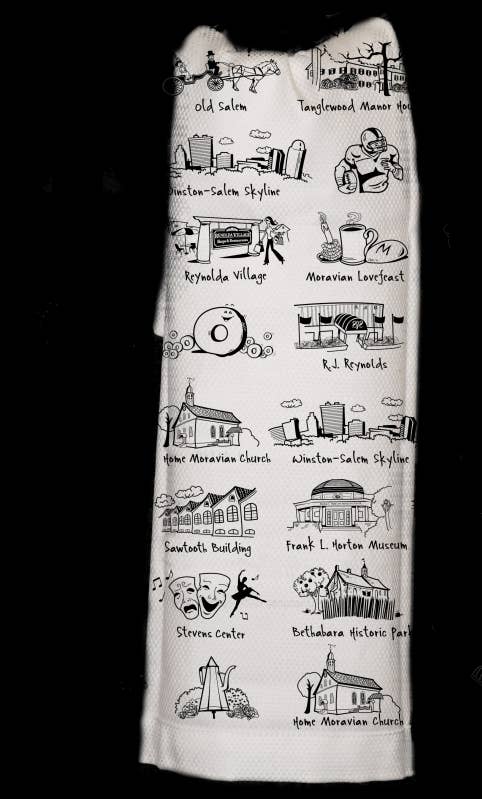 Old Salem
Tanglewood Manor Hou
Winston-Salem Skyline
REYNOLDA VILLAGE
Shops & Restaurants
Reynolda Village
M
Moravian Lovefeast
RJR
R.J. Reynolds
Home Moravian Church
Winston-Salem Skyline
Sawtooth Building
Frank L. Horton Museum
Stevens Center
Bethabara Historic Park
Home Moravian Church